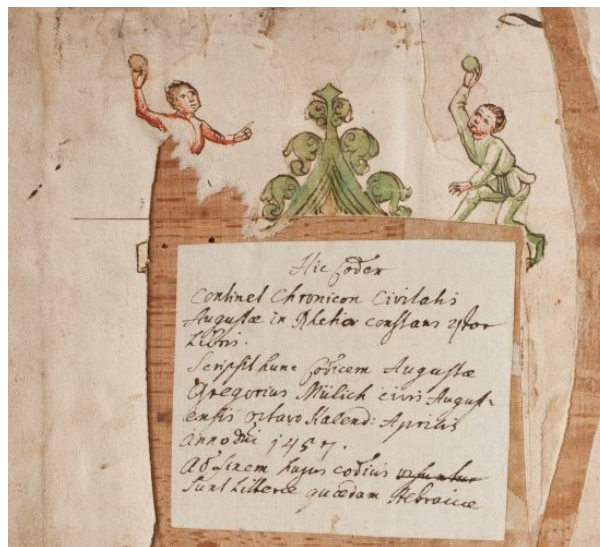 Hic Codex
Continet Chronicon Civitatis
Augustæ in Rhetia constans 4tor
Libris.
Scripsit hunc Codicem Augustæ
Gregorius Mülich civis August-
ensis octavo Kalend: Aprilis
Anno Dni 1457.
Ad finem hujus codicis
Sunt Litteræ quædam Hebraicæ